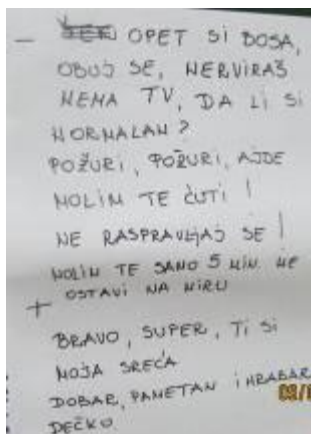 - OPET SI BOSA,
OBUJ SE, NERVIRAŠ
NEMA TV, DA LI SI
NORMALAN?
POŽURI, POŽURI, AJDE
MOLIM TE ĆUTI!
NE RASPRAVLJAJ SE!
MOLIM TE SAMO 5 MIN. ME
OSTAVI NA MIRU
+
BRAVO, SUPER, TI SI
MOJA SREĆA
DOBAR, PAMETAN I HRABAR
DEČKO